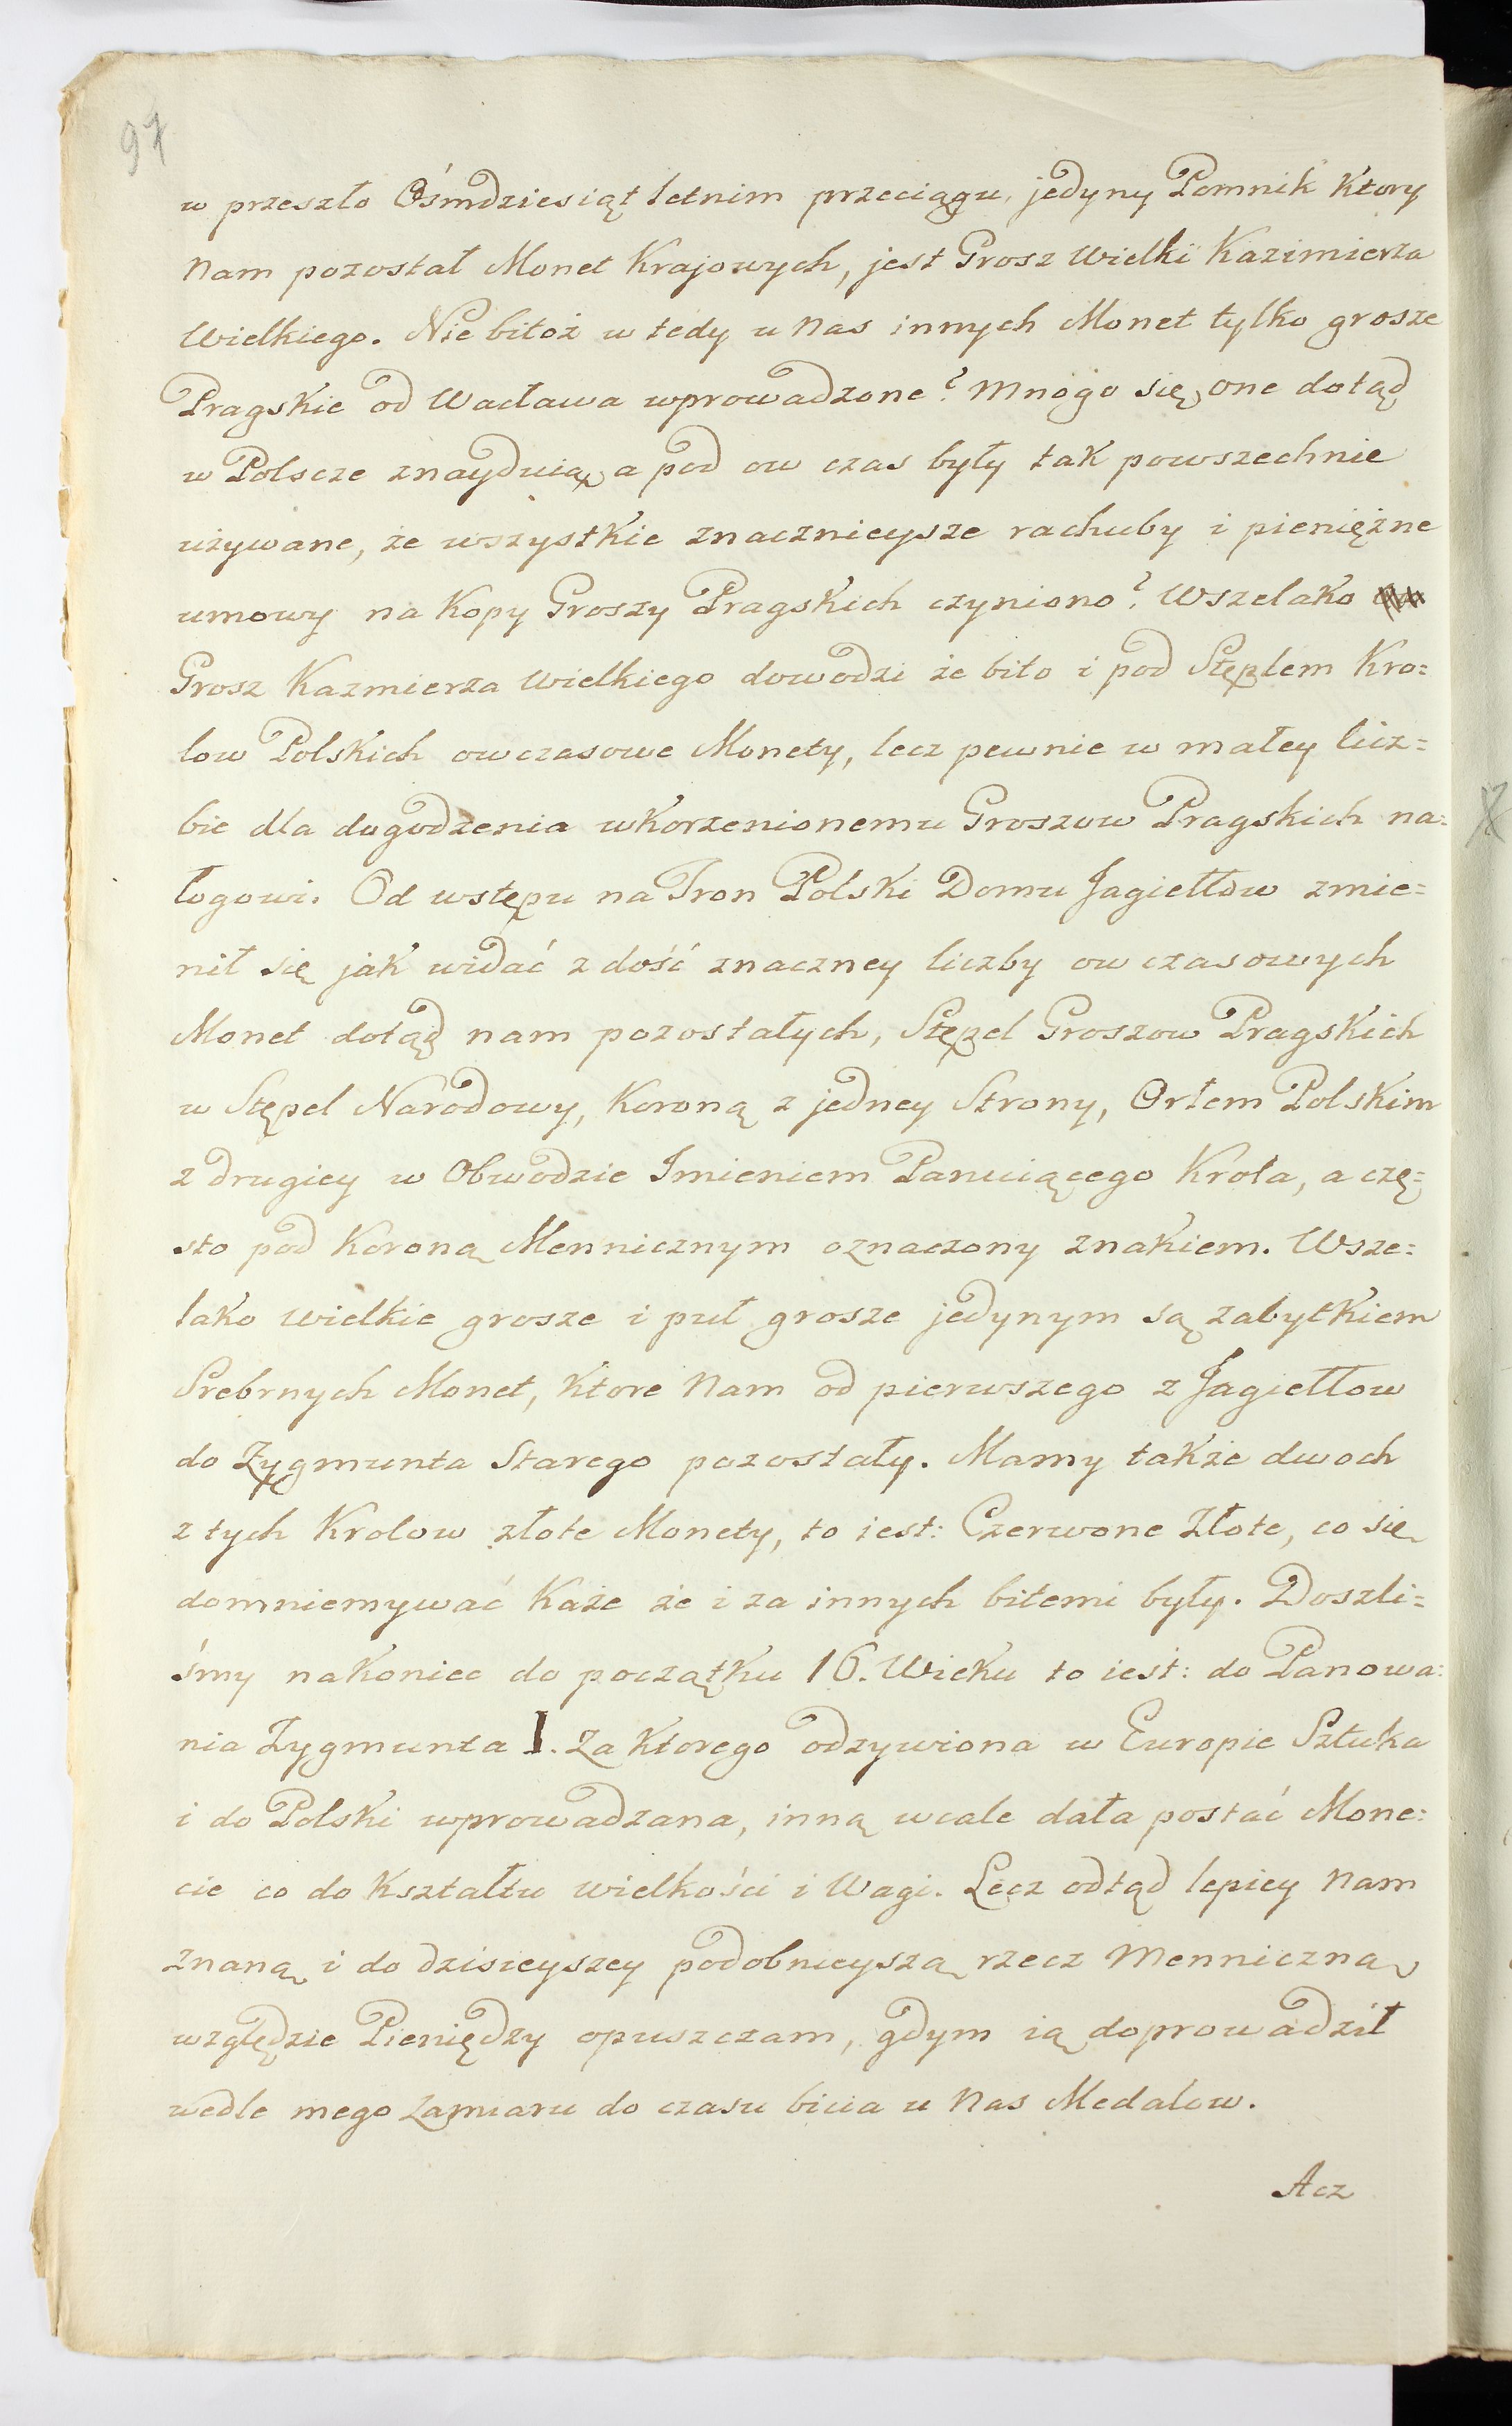 97
w przeszło Ośmdziesiąt letnim przeciągu, jedyny Pomnik Ktory
Nam pozostał Monet Krajowych, jest Grosz Wielki Kazimierza
Wielkiego. Nie bitoż w tedy u Nas innych Monet tylko grosze
Pragskie od Wacława wprowadzone? Mnogo się one dotąd
w Polscze znayduią, a pod ow czas były tak powszechnie
używane, że wszystkie znacznieysze rachuby i pieniężne
umowy na Kopy Groszy Pragskich czyniono? Wszelako
Grosz Kazmierza Wielkiego dowodzi że bito i pod Stęplem Kro=
low Polskich owczasowe Monety, lecz pewnie w małey licz=
bie dla dogodzenia wkorzenionemu Groszow Pragskich na=
łogowi. Od wstępu na Tron Polski Domu Jagiełłow zmie=
nił się jak widać z dość znaczney liczby ow czasowych
Monet dotąd nam pozostałych, Stępel Groszow Pragskich
w Stępel Narodowy, Koroną z jedney Strony, Orłem Polskim
z drugiey w Obwodzie Imieniem Panuiącego Krola, a czę=
sto pod Koroną Mennicznym oznaczony znakiem. Wsze=
lako Wielkie grosze i puł grosze jedynym są zabytkiem
Srebrnych Monet, Ktore Nam od pierwszego z Jagiełłow
do Zygmunta Starego pozostały. Mamy także dwoch
z tych Krolow złote Monety, to iest: Czerwone Złote, co się
domniemywać Każe że i za innych bitemi były. Doszli=
śmy nakoniec do początku 16. Wieku to iest: do Panowa=
nia Zygmunta I. Za Ktorego odzywiona w Europie Sztuka
i do Polski wprowadzana, inną wcale dała postać Mone=
cie co do Kształtu wielkości i Wagi. Lecz odtąd lepiey Nam
znaną i do dzisieyszey podobnieyszą rzecz Menniczną
względzie Pieniędzy opuszczam, gdym ią doprowadził
wedle mego Zamiaru do czasu bicia u Nas Medalow.
Acz